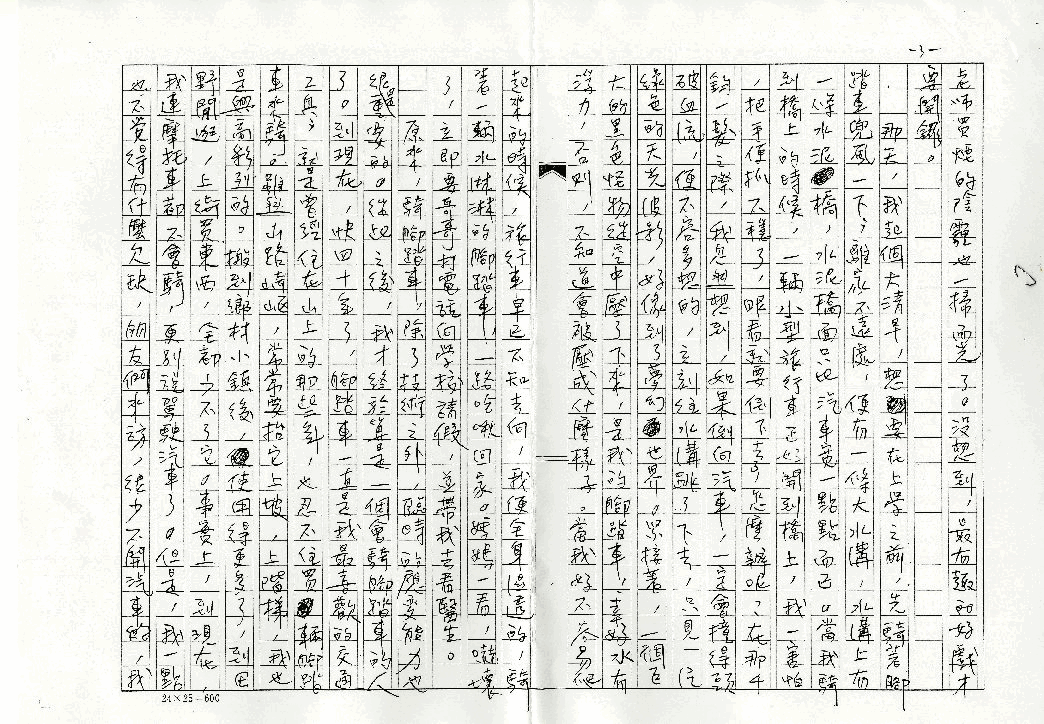 -3-
走味買煙的陰霾也一掃而光了。沒想到，最有趣的好戲才
要開鑼。
那天，我起個大清早，想要在上學之前，先騎著腳
踏車兜風一下；離家不遠處，便有一條大水溝，水溝上有
一條水泥橋，水泥橋面只比汽車寬一點點而已。當我騎
到橋上的時候，一輛小型旅行車正好開到橋上，我一害怕
，把手便抓不穩了，眼看就要倒下去了，怎麼辦呢？在那千
鈞一髮之際，我忽然想到，如果倒向汽車，一定會撞得頭
破血流，便不容多想的，立刻往水溝跳了下去，只見一片
綠色的天光波影，好像到了夢幻世界。緊接著，一個巨
大的黑色怪物從空中壓了下來，是我的腳踏車，幸好水有
浮力，否則，不知道會被壓成什麼樣子。當我好不容易爬
起來的時候，旅行車早已不知去向，我便全身濕透的，騎
著一輛水淋淋的腳踏車，一路哈啾回家。媽媽一看，嚇壞
了，立即要哥哥打電話向學校請假，並帶我去看醫生。
原來，騎腳踏車，除了技術之外，臨時的應變能力也
很重要的。從此之後，我才終於算是一個會騎腳踏車的人
了。到現在，快四十年了，腳踏車一直是我最喜歡的交通
工具；就是曾經住在山上的那些年，也忍不住買輛腳踏
車來騎。雖然山路崎嶇，常常要抬它上坡，上階梯，我也
是興高彩烈的。搬到鄉村小鎮後，使用得更多了，到田
野閒逛，上街買東西，全都少不了它。事實上，到現在，
我連摩托車都不會騎，更別說駕駛汽車了。但是，我一點
也不覺得有什麼欠缺，朋友們來訪，很少不開汽車的，我
24×25=600